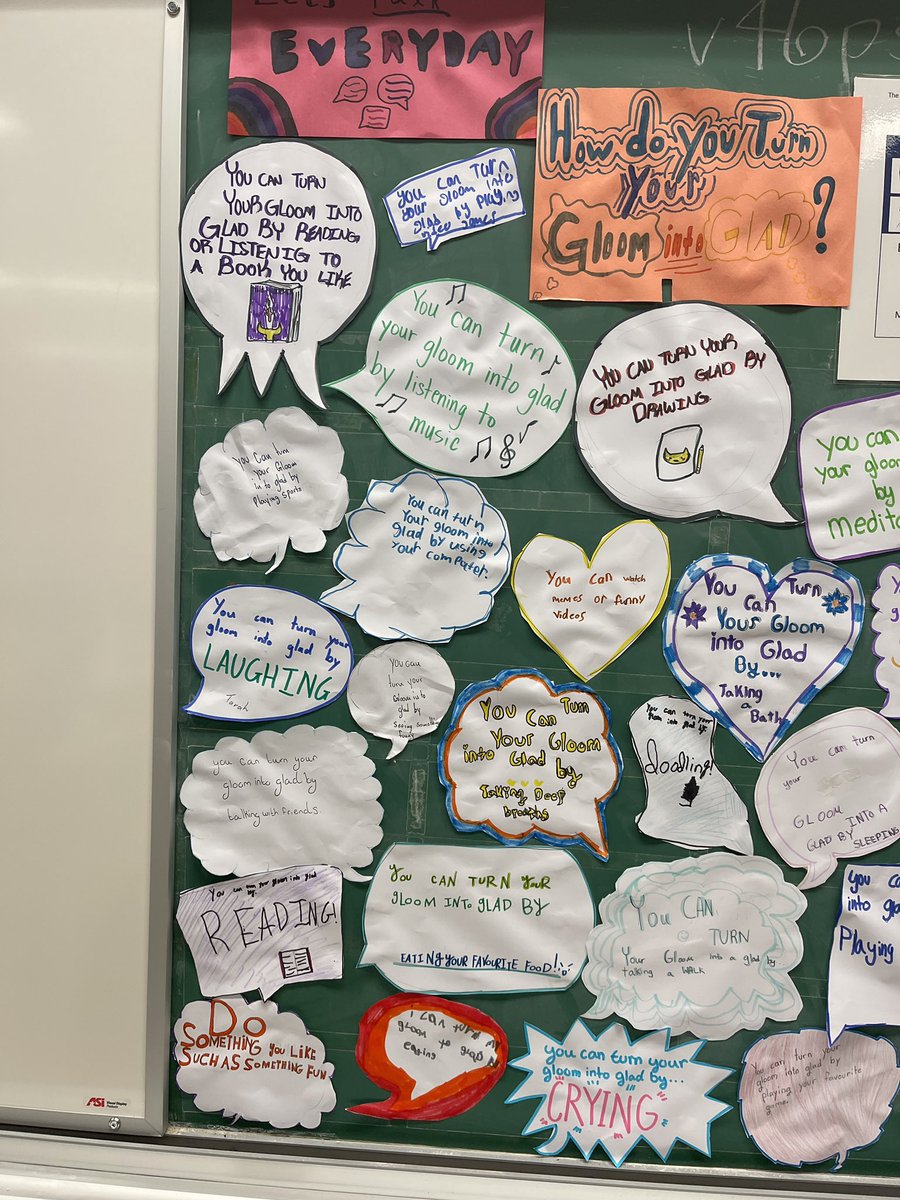 Let's Talk
EVERYDAY
v4bps
The
How do you Turn
Your
Gloom into GLAD?
YOU CAN TURN
YOUR GLOOM INTO
GLAD BY READING
OR LISTENIG TO
A BOOK YOU LIKE
you can TURN
your gloom into
glad by playing
video games
You can turn
your gloom into glad
by listening to
music
YOU CAN TURN YOUR
GLOOM INTO GLAD BY
DRAWING.
you can
your gloom
by
You can turn
your Gloom
in to glad by
playing sports
You can turn
Your gloom into
glad by using
your computer.
You can watch
memes or funny
videos
You Turn
Can
Your Gloom
into Glad
By...
Taking
a
Bath
You can turn your
gloom into glad by
LAUGHING
Tarah
You can
turn your
Gloom into
glad by
seeing something
funny
You Can Turn
Your Gloom
into Glad by
Taking Deep
breaths
You can turn your
doodling!
You can turn
your
GLOOM INTO A
GLAD BY SLEEPING
you can turn your
gloom into glad by
talking with friends.
You can turn your gloom into glad
by.
READING!
YOU CAN TURN YOUR
GLOOM INTO GLAD BY
EATING YOUR FAVOURITE FOOD!!
YOU CAN
TURN
Your Gloom into a glad by
taking a WALK
you can
into gla
Playing
DO
SOMETHING YOU LIKE
SUCH AS SOMETHING FUN
I CAN turn my
gloom to glad
eating
you can turn your
gloom into glad by...
CRYING
You can turn your
gloom into glad by
playing your favourite
game.
ASI Visual Display Products